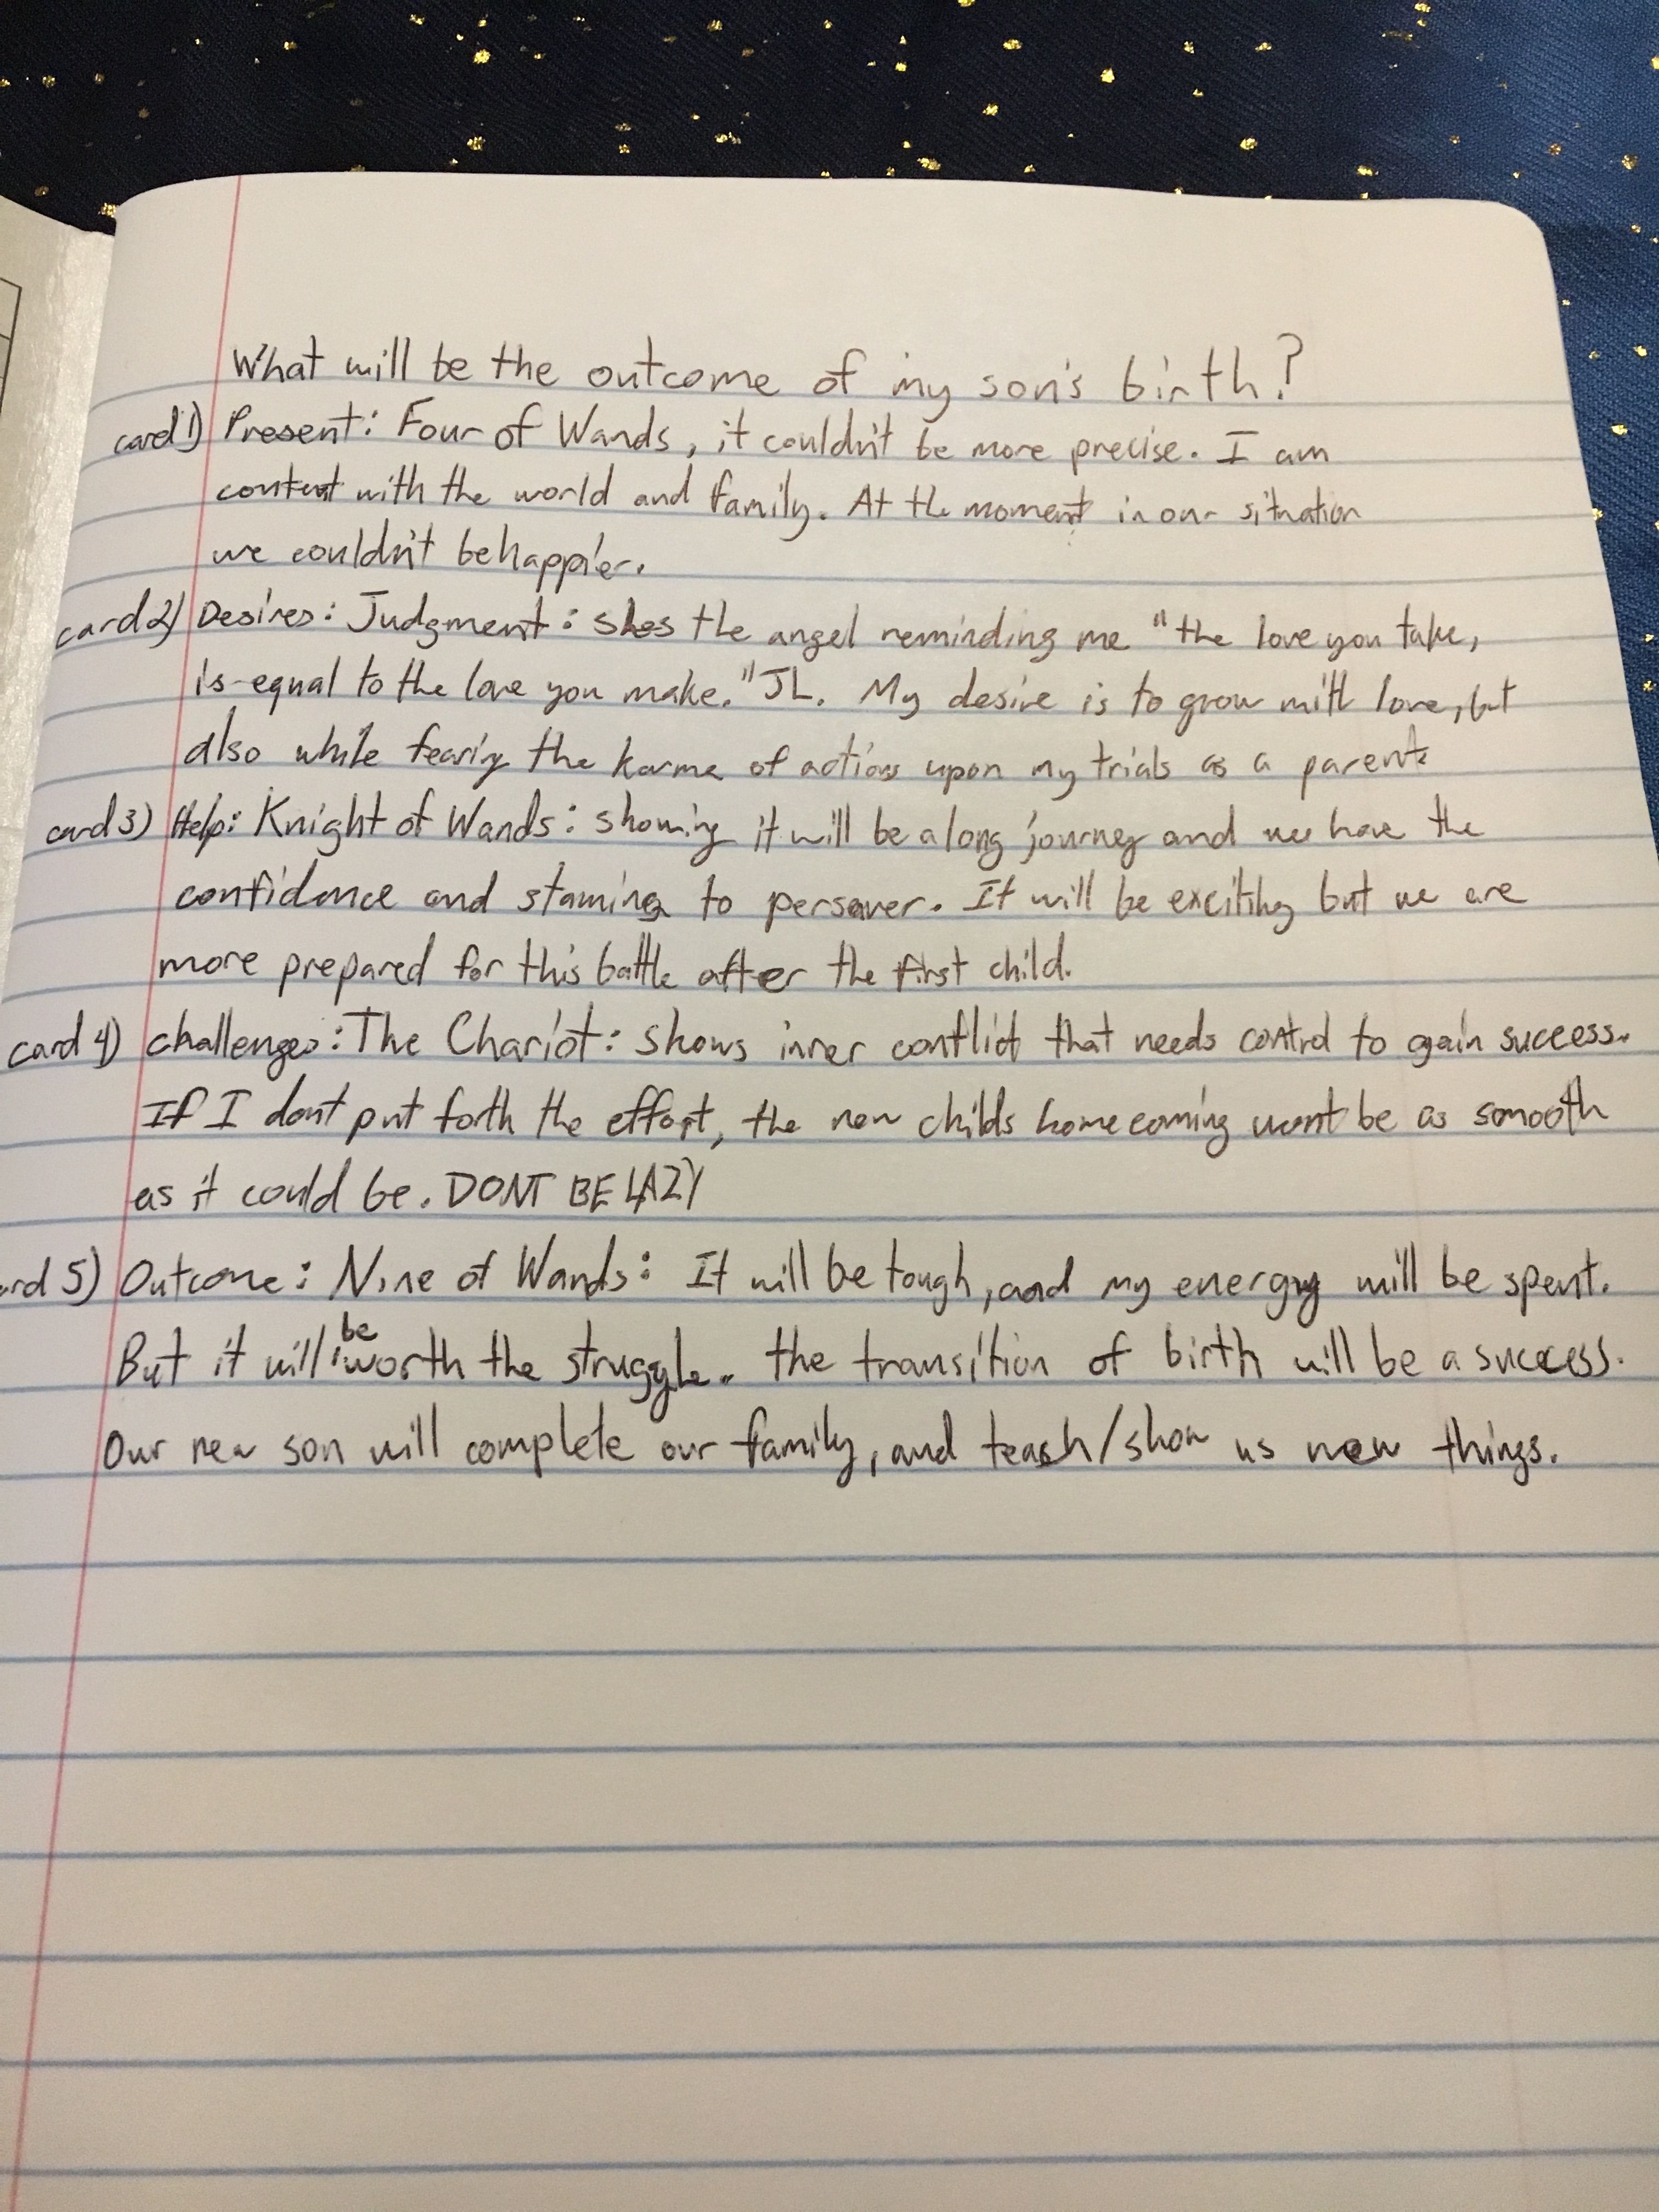 What will be the outcome of my son's birth?
card 1) Present: Four of Wands, it couldn't be more precise. I am
content with the world and family. At the moment in our situation
we couldn't be happier.
card 2) Desires: Judgment: shes the angel reminding me "the love you take,
is equal to the love you make." JL. My desire is to grow with love, but
also while fearing the karma of actions upon my trials as a parent
card 3) Help: Knight of Wands: showing it will be a long journey and we have the
confidence and stamina to persever. It will be exciting but we are
more prepared for this battle after the first child.
card 4) challenges: The Chariot: shows inner conflict that needs control to gain success.
If I dont put forth the effort, the new childs homecoming wont be as smooth
as it could be. DONT BE LAZY
ard 5) Outcome: Nine of Wands: It will be tough, and my energy will be spent.
But it will be worth the struggle. the transition of birth will be a success.
Our new son will complete our family, and teach/show us new things.